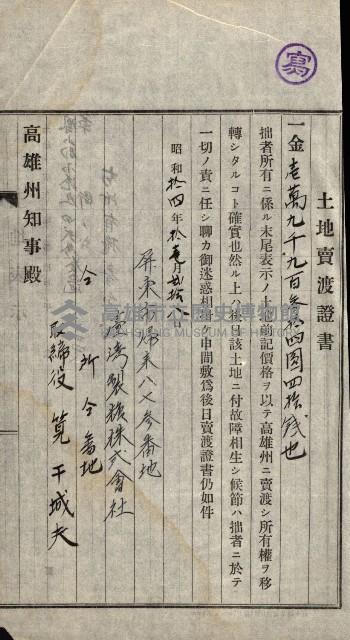 寫
土地賣渡證書
一金壱萬九千九百参拾四圓四拾錢也
拙者所有ニ係ル末尾表示ノ土地前記價格ヲ以テ高雄州ニ賣渡シ所有權ヲ移
轉シタルコト確實也然ル上ハ後日該土地ニ付故障相生シ候節ハ拙者ニ於テ
一切ノ責ニ任シ聊カ御迷惑相掛ケ申間敷爲後日賣渡證書仍如件
昭和拾四年拾壱月弐拾八日
屏東市歸來八七参番地
臺灣製糖株式會社
仝所仝番地
取締役 筧干城夫
高雄州知事殿
高雄市立歷史博物館
KAOHSIUNG MUSEUM OF HISTORY